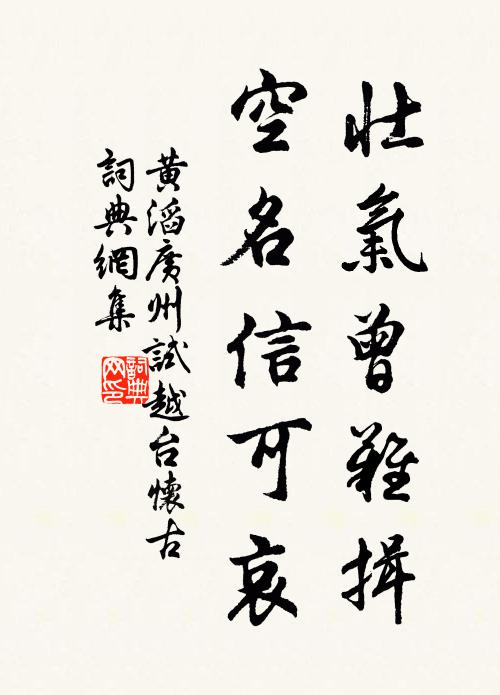 壯氣曾難揖
空名信可哀
黃滔廣州試越台懷古
詞典網集
詞典網印